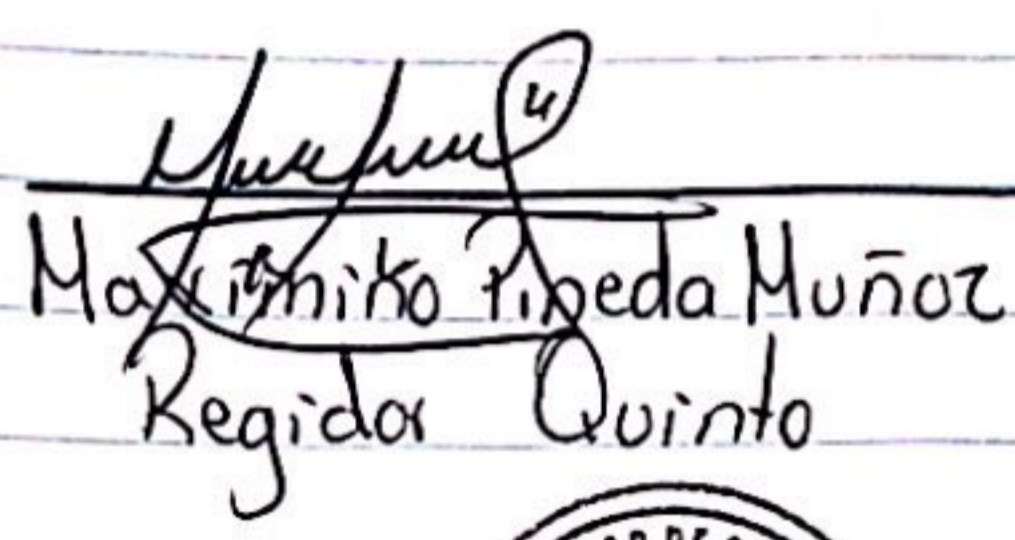 Maximino Pineda Muñoz
Regidor Quinto